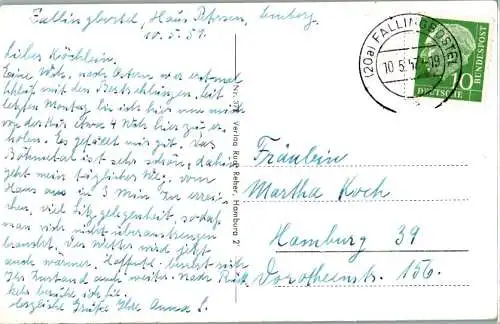 Fallingbostel, Haus Petersen, 
10.5.57.
Liebes Köchlein.
Eine Woche nach Ostern war erstmal
Schluß mit den Bestrahlungen, seit
letzten Montag bin ich hier um mich
vor der Kur etwa 4 Wch. hier zu er-
holen. Es gefällt mir gut. Das
Böhmetal ist sehr schön, dahin
geht mein täglicher Weg, vom
Haus aus in 3 Min. zu errei-
chen, viel Sitzgelegenheit, sodaß
man sich nicht überanstrengen
braucht. Das Wetter wird jetzt
auch wärmer. Hoffentl. bessert sich
Ihr Zustand auch weiter. Nach Rück-
kehr besuche ich Sie.
Herzliche Grüße Ihre Anna L.
Nr. 371 Verlag Rud. Reher, Hamburg 2
(20a) FALLINGBOSTEL
10.5.57-19
10
DEUTSCHE
BUNDESPOST
Fräulein
Martha Koch
Hamburg 39
Dorotheenstr. 156.